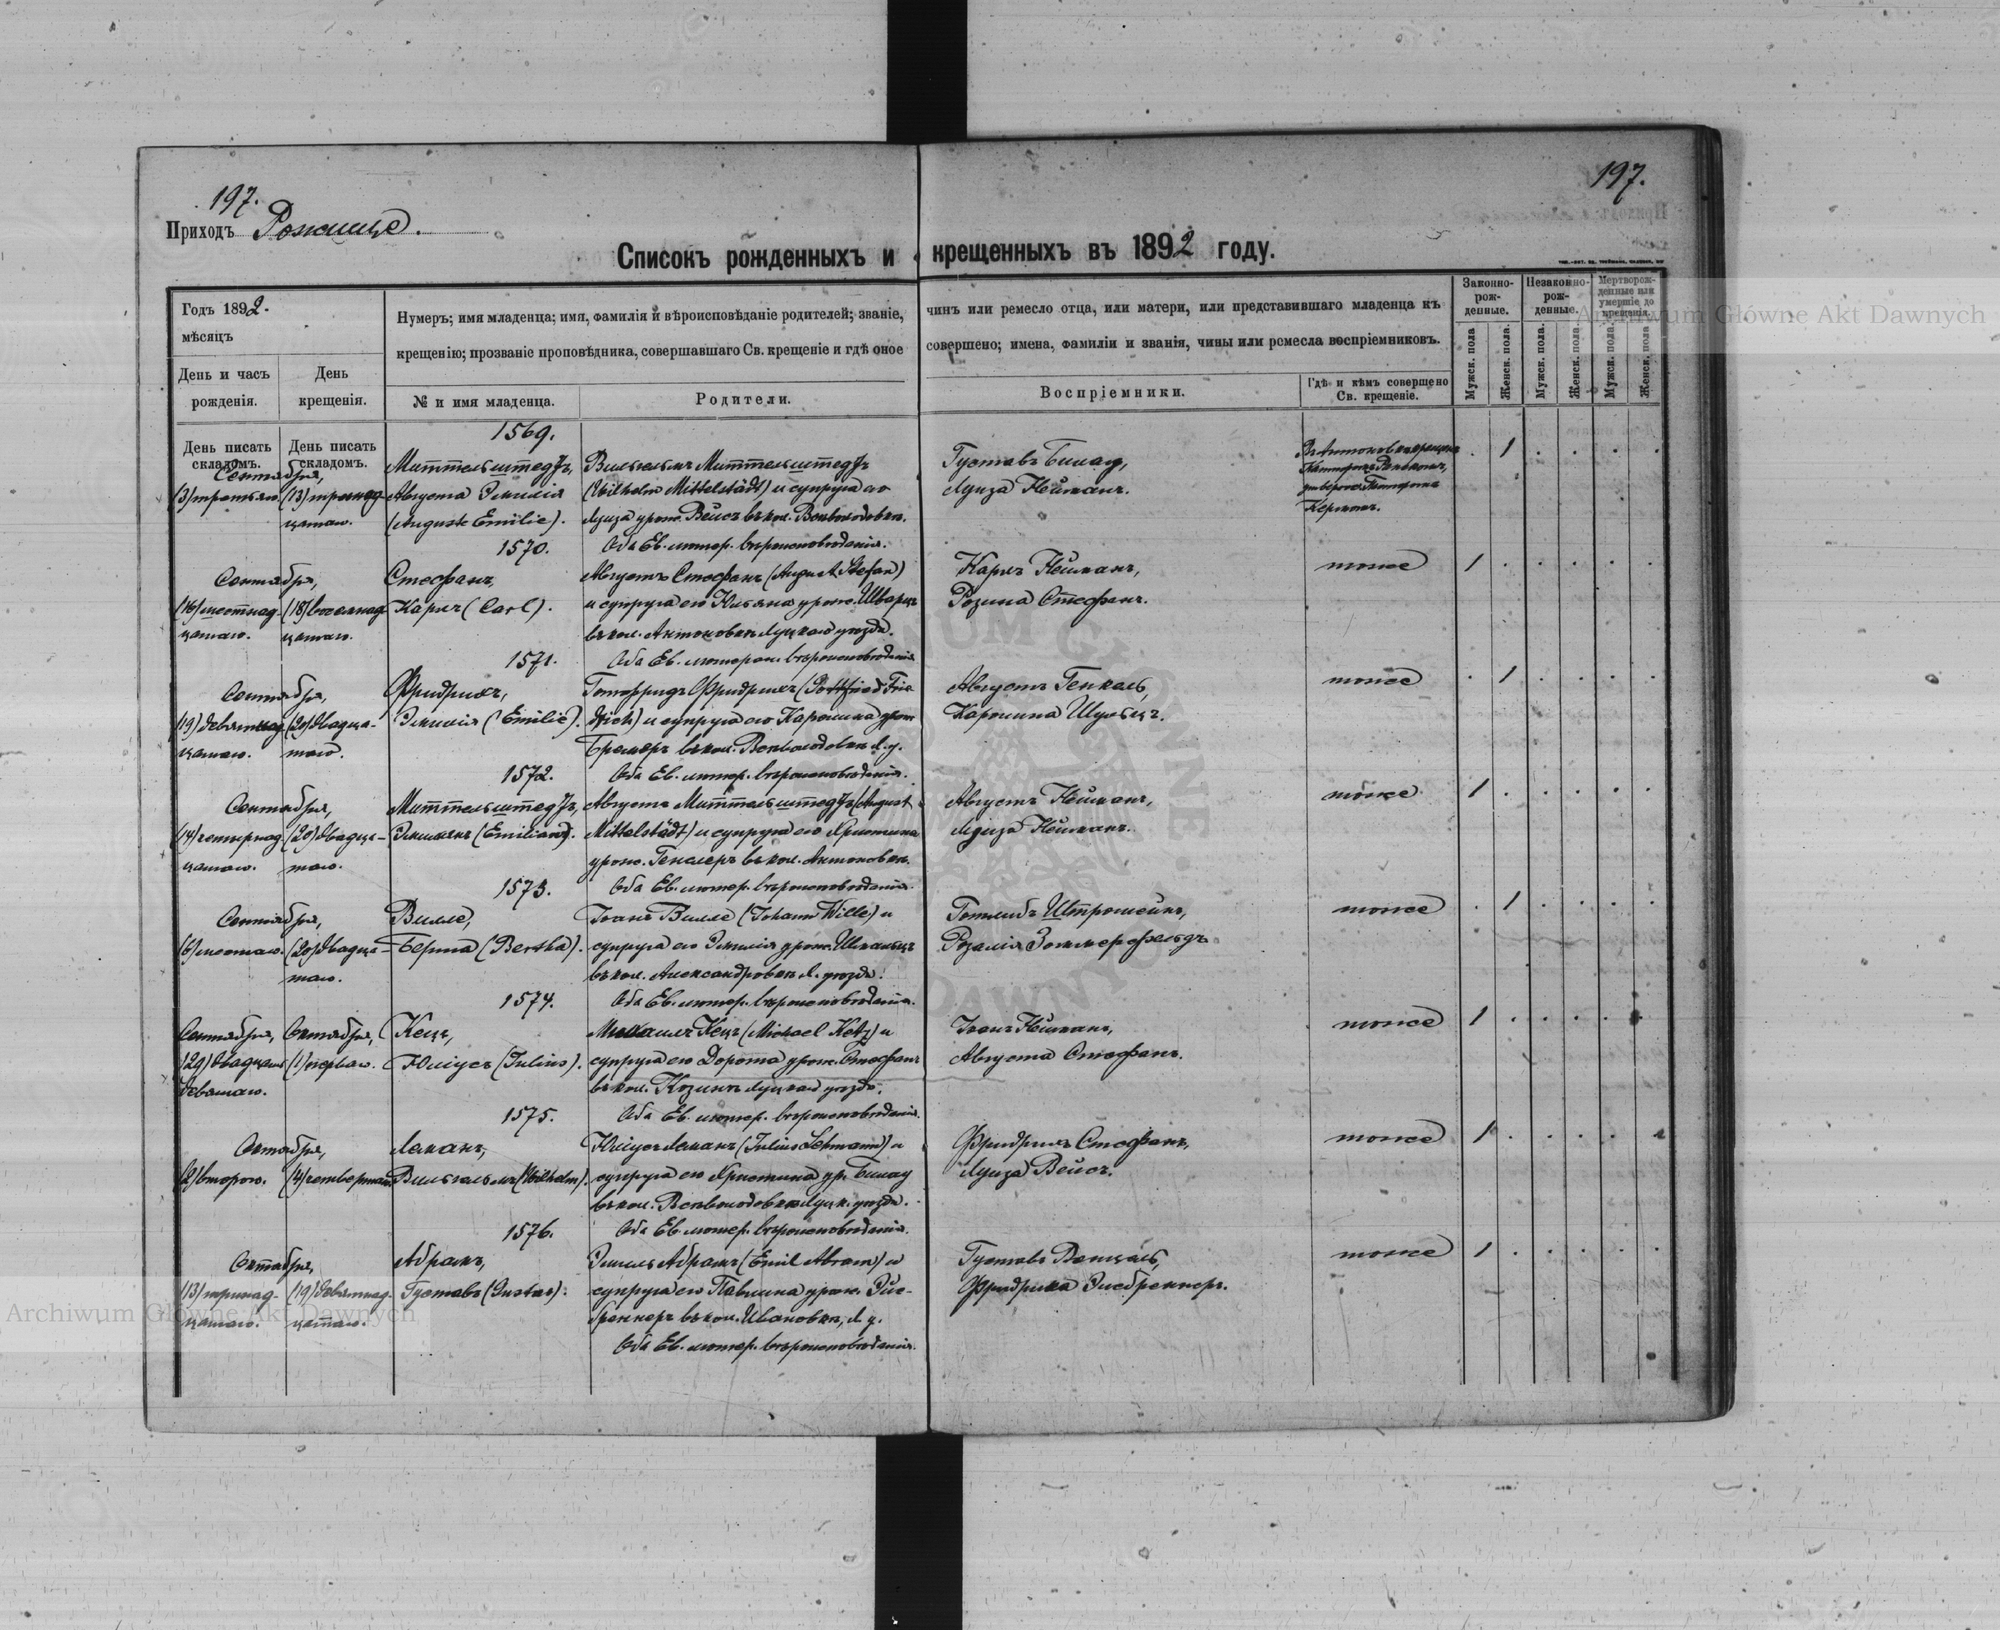 197.
197.
Приходъ Рожище.
Списокъ рожденныхъ и крещенныхъ въ 1892 году.
Годъ 1892.
мѣсяцъ
День и часъ рожденія.
День крещенія.
Нумеръ; имя младенца; имя, фамилія и вѣроисповѣданіе родителей; званіе, чинъ или ремесло отца, или матери, или представившаго младенца къ
крещенію; прозваніе проповѣдника, совершавшаго Св. крещеніе и гдѣ оное совершено; имена, фамиліи и званія, чины или ремесла воспріемниковъ.
№ и имя младенца.
Родители.
Воспріемники.
Гдѣ и кѣмъ совершено Св. крещеніе.
Законно-рож-денные.
Незаконно-рож-денные.
Мертворож-денные или умершіе до крещенія.
Мужск. пола
Женск. пола.
Мужск. пола.
Женск. пола.
Мужск. пола.
Женск. пола
День писать складомъ.
День писать складомъ.
1569.
Сентября,
(3) третьяго
(13) тринад-
цатаго.
Миттельштедтъ,
Августа Эмилія
(Auguste Emilie).
Вильгельмъ Миттельштедтъ
(Wilhelm Mittelstädt) и супруга его
Луиза урож. Вейсъ въ кол. Всеволодовкѣ.
Оба Ев. лютер. вѣроисповѣданія.
Густавъ Билау,
Луиза Нейманъ.
1
1570.
Сентября,
(16) шестнад-
цатаго.
(18) восемнад-
цатаго.
Стефанъ,
Карлъ (Carl).
Августъ Стефанъ (August Stefan)
и супруга его Юльяна урож. Шварцъ
въ кол. Антоновкѣ Луцкаго уѣзда.
Оба Ев. лютеран. вѣроисповѣданія
Карлъ Нейманъ,
Розина Стефанъ.
тоже
1
1571.
Сентября,
(19) девятнад-
цатаго.
(20) двадца-
таго.
Фридрихъ,
Эмилія (Emilie).
Готфридъ Фридрихъ (Gottfried Frie
drich) и супруга его Каролина урож.
Бремеръ въ кол. Всеволодовкѣ Л. у.
Оба Ев. лютер. вѣроисповѣданія.
Августъ Генкель,
Каролина Шульцъ.
тоже
1
1572.
Сентября,
(14) четырнад-
цатаго.
(20) двадца-
таго.
Миттельштедтъ,
Эмильянъ (Emilian).
Августъ Миттельштедтъ (August
Mittelstädt) и супруга его Христина
урож. Генслеръ въ кол. Антоновкѣ.
Оба Ев. лютер. вѣроисповѣданія.
Августъ Нейманъ,
Луиза Нейманъ.
тоже
1
1573.
Сентября,
(6) шестаго.
(20) двадца-
таго.
Вилле,
Берта (Bertha).
Іоганъ Вилле (Johann Wille) и
супруга его Эмилія урож. Шмальцъ
въ кол. Александровкѣ Л. уѣзда.
Оба Ев. лютер. вѣроисповѣданія.
Готлибъ Штрошейнъ,
Розалія Зоммерфельдъ.
тоже
1
1574.
Сентября,
(29) двадцать
девятаго.
Октября,
(1) перваго.
Кецъ,
Юліусъ (Julius).
Михаилъ Кецъ (Michael Ketz) и
супруга его Дорота урож. Стефанъ
въ кол. Козинъ Луцкаго уѣзда.
Оба Ев. лютер. вѣроисповѣданія.
Іоганъ Нейманъ,
Августа Стефанъ.
тоже
1
1575.
Октября,
(2) втораго.
(4) четвертаго.
Леманъ,
Вильгельмъ (Wilhelm).
Юліусъ Леманъ (Julius Lehmann) и
супруга его Христина ур. Билау
въ кол. Всеволодовкѣ Луцк. уѣзда.
Оба Ев. лютер. вѣроисповѣданія.
Фридрихъ Стефанъ,
Луиза Вейсъ.
тоже
1
1576.
Октября,
(13) тринад-
цатаго.
(19) девятнад-
цатаго.
Абрамъ,
Густавъ (Gustav).
Эмиль Абрамъ (Emil Abram) и
супруга его Павлина урож. Эйс-
бреннеръ въ кол. Ивановкѣ, Л. у.
Оба Ев. лютер. вѣроисповѣданія.
Густавъ Венцель,
Фридрика Эйсбреннеръ.
тоже
1
Archiwum Główne Akt Dawnych
Archiwum Główne Akt Dawnych